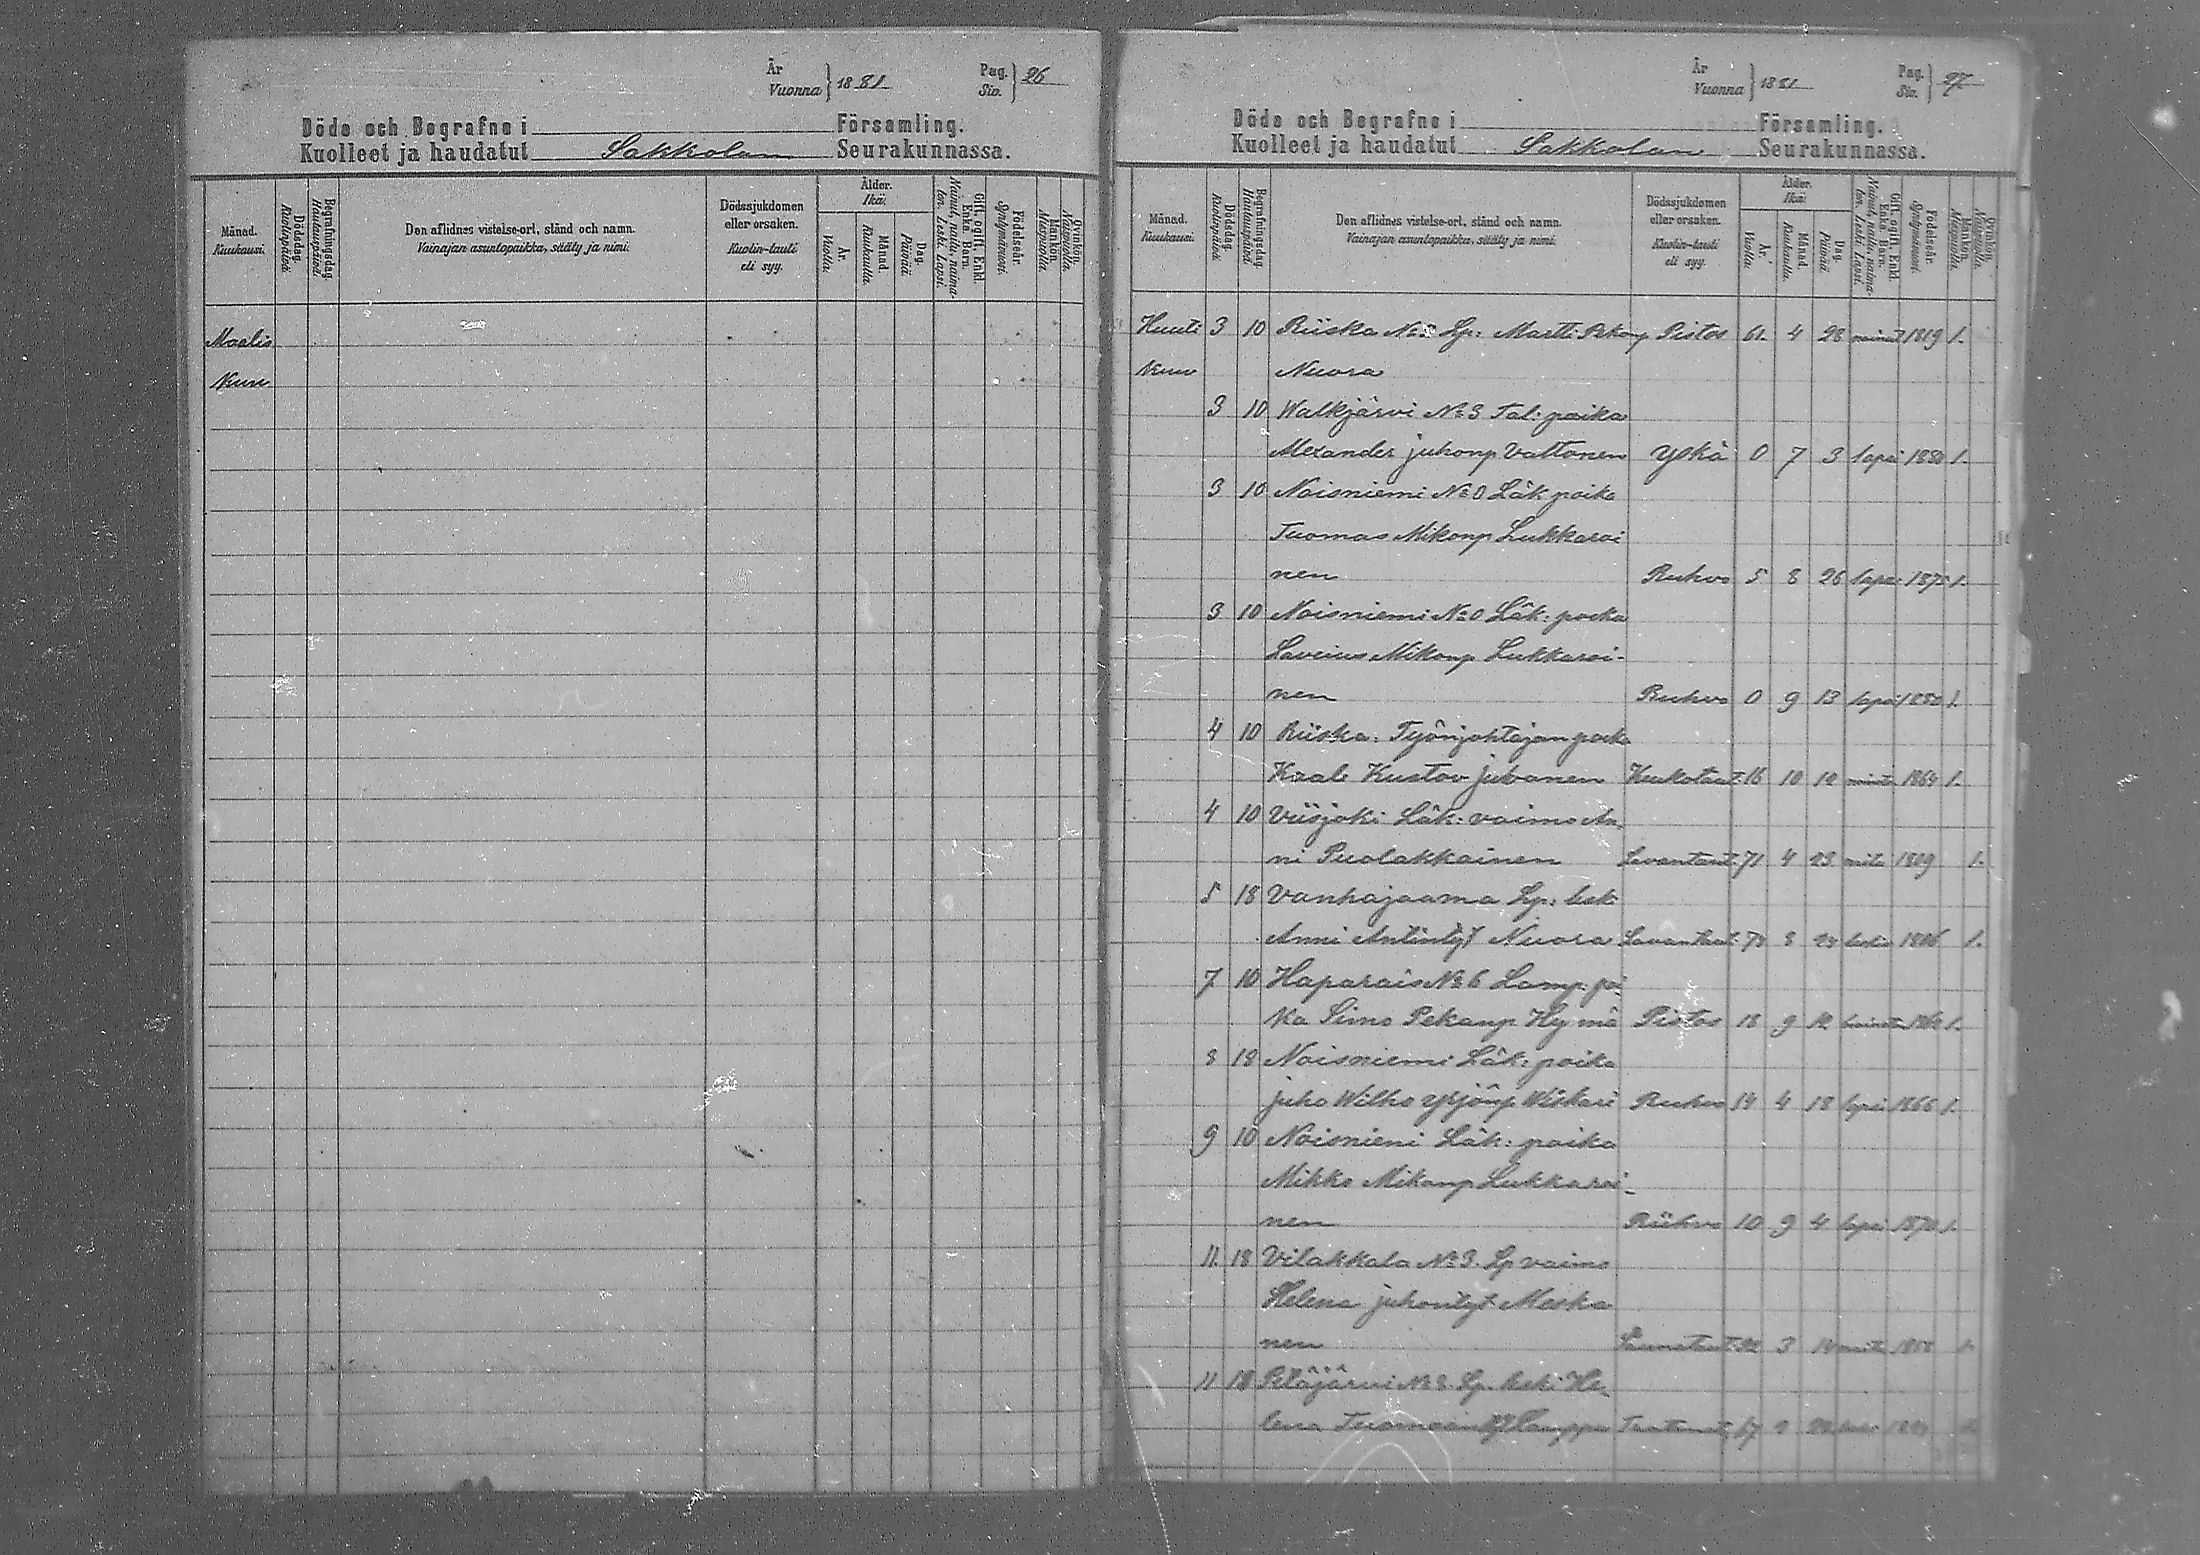 År
Vuonna } 1881 Pag.
Siv. } 26
Döde och Begrafne i Församling.
Kuolleet ja haudatut Sakkolan Seurakunnassa.
Månad.
Kuukausi.
Dödsdag.
Kuolinpäivä.
Begrafningsdag.
Hautauspäivä.
Den aflidnes vistelse-ort, stånd och namn.
Vainajan asuntopaikka, sääty ja nimi.
Dödssjukdomen
eller orsaken.
Kuolin-tauti
eli syy.
Ålder.
Ikä.
År.
Vuotta.
Månad.
Kuukautta.
Dag.
Päivää.
Gift, ogift, Enkl.
Enka. Barn.
Nainut, naitu, naima-
ton. Leski. Lapsi.
Födelseår.
Syntymävuosi.
Mankön.
Miespuolta.
Qvinkön.
Naispuolta.
Maalis
Kuu
År
Vuonna } 1881 Pag.
Siv. } 27
Döde och Begrafne i Församling.
Kuolleet ja haudatut Sakkolan Seurakunnassa.
Månad.
Kuukausi.
Dödsdag.
Kuolinpäivä.
Begrafningsdag.
Hautauspäivä.
Den aflidnes vistelse-ort, stånd och namn.
Vainajan asuntopaikka, sääty ja nimi.
Dödssjukdomen
eller orsaken.
Kuolin-tauti
eli syy.
Ålder.
Ikä.
År.
Vuotta.
Månad.
Kuukautta.
Dag.
Päivää.
Gift, ogift, Enkl.
Enka. Barn.
Nainut, naitu, naima-
ton. Leski. Lapsi.
Födelseår.
Syntymävuosi.
Mankön.
Miespuolta.
Qvinkön.
Naispuolta.
Huuti 3 10 Riiska Lp: Martti Pekanp Pistos 61 4 28 nainut 1819 1.
Kuu Nuora
3 10 Walkjärvi No 3 Tal: poika
Alexander juhonp Vattonen Yskä 0 7 3 lapsi 1880 1.
3 10 Noisniemi No 0 Läk poika
Tuomas Mikonp Lukkaroi
nen Ruhvo 5 8 26 lapsi 1875 1.
3 10 Noisniemi No 0 Läk: poika
Mikonp Lukkaroi-
nen Ruhvo 0 9 13 lapsi 1880 1.
4 10 Riiska: Työnjohtajan poika
Kaal Kustav juvonen Keuhkotaut 16 10 12 1864 1.
4 10 Viisjoki Läk: vaimo An
ni Puolakkainen Lavantaut 71 4 23 1809 1.
5 18 Vanhajaama Lp: lesk:
Anni Antintyt Nuora Lavantaut 74 8 leski 1806 1.
7 10 Haparais No 6 Lamp: poi
ka Simo Pekanp Hymä Pistos 18 9 12 1862 1.
8 18 Noisniemi Läk: poika
juho Wilho Yrjönp Wiskari Ruhvo 14 4 18 lapsi 1866 1.
9 10 Noisniemi Läk: poika
Mikko Mikonp Lukkaroi-
nen Ruhvo 10 9 4 lapsi 1870 1.
11. 18 Vilakkala No 3. Lp vaimo
Helena juhontyt Meska
nen 3 14 1.
11 18 Petäjärvi Lp. leski He
lena Tuomaantyt Lamppu 67